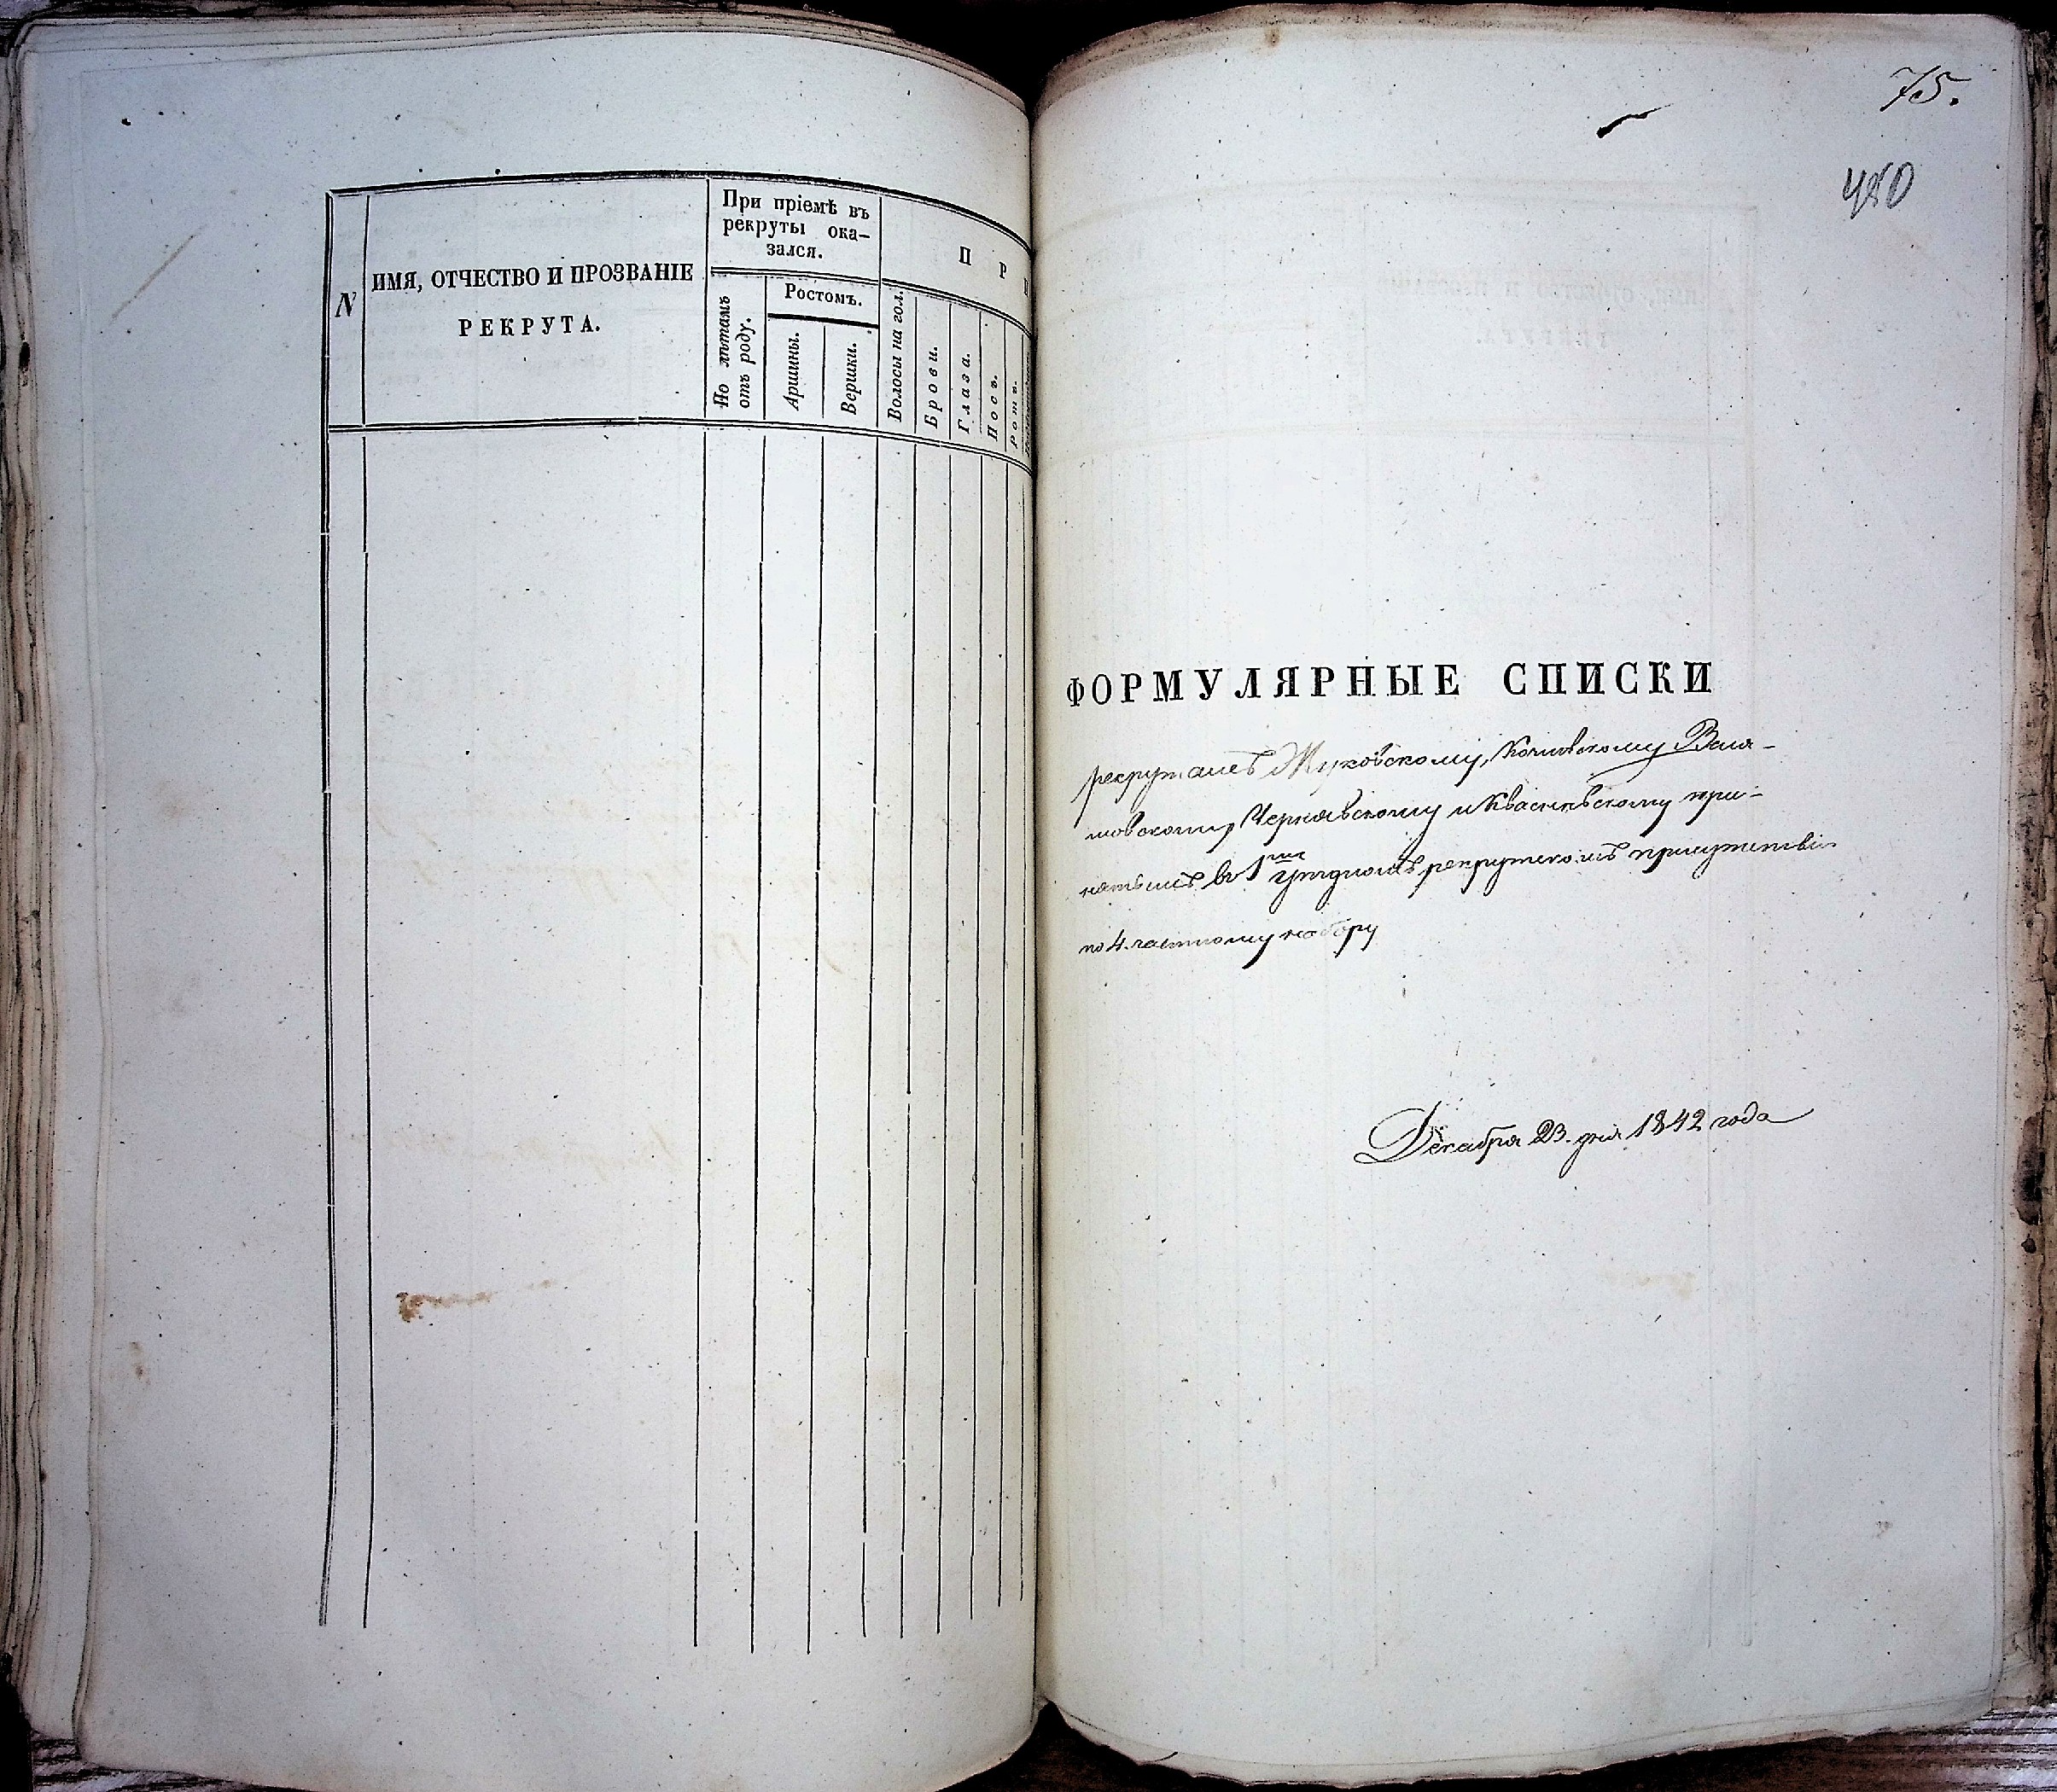 N
ИМЯ, ОТЧЕСТВО И ПРОЗВАНІЕ
РЕКРУТА.
При пріемѣ въ
рекруты ока-
зался.
По лѣтамъ
отъ роду.
Ростомъ.
Аршины.
Вершки.
П Р
Волосы на гол.
Брови.
Глаза.
Носъ.
Ротъ.
75.
480
ФОРМУЛЯРНЫЕ СПИСКИ
рекрутамъ Жуковскому,
Чернявскому и Квасневскому при-
нятымъ въ 1мъ рекрутскомъ присутствіи
по 4. частному набору
Декабря 23. дня 1842 года